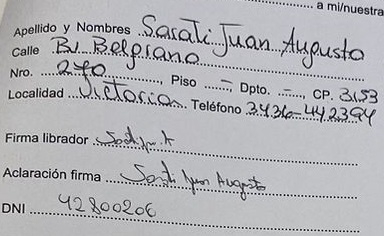 a mi/nuestra
Apellido y Nombres Sarati Juan Augusto
Calle Bv Belgrano
Nro. 270, Piso —, Dpto. —, CP. 3153
Localidad Victoria Teléfono 3436-442394
Firma librador
Aclaración firma Juan Augusto
DNI 42800206